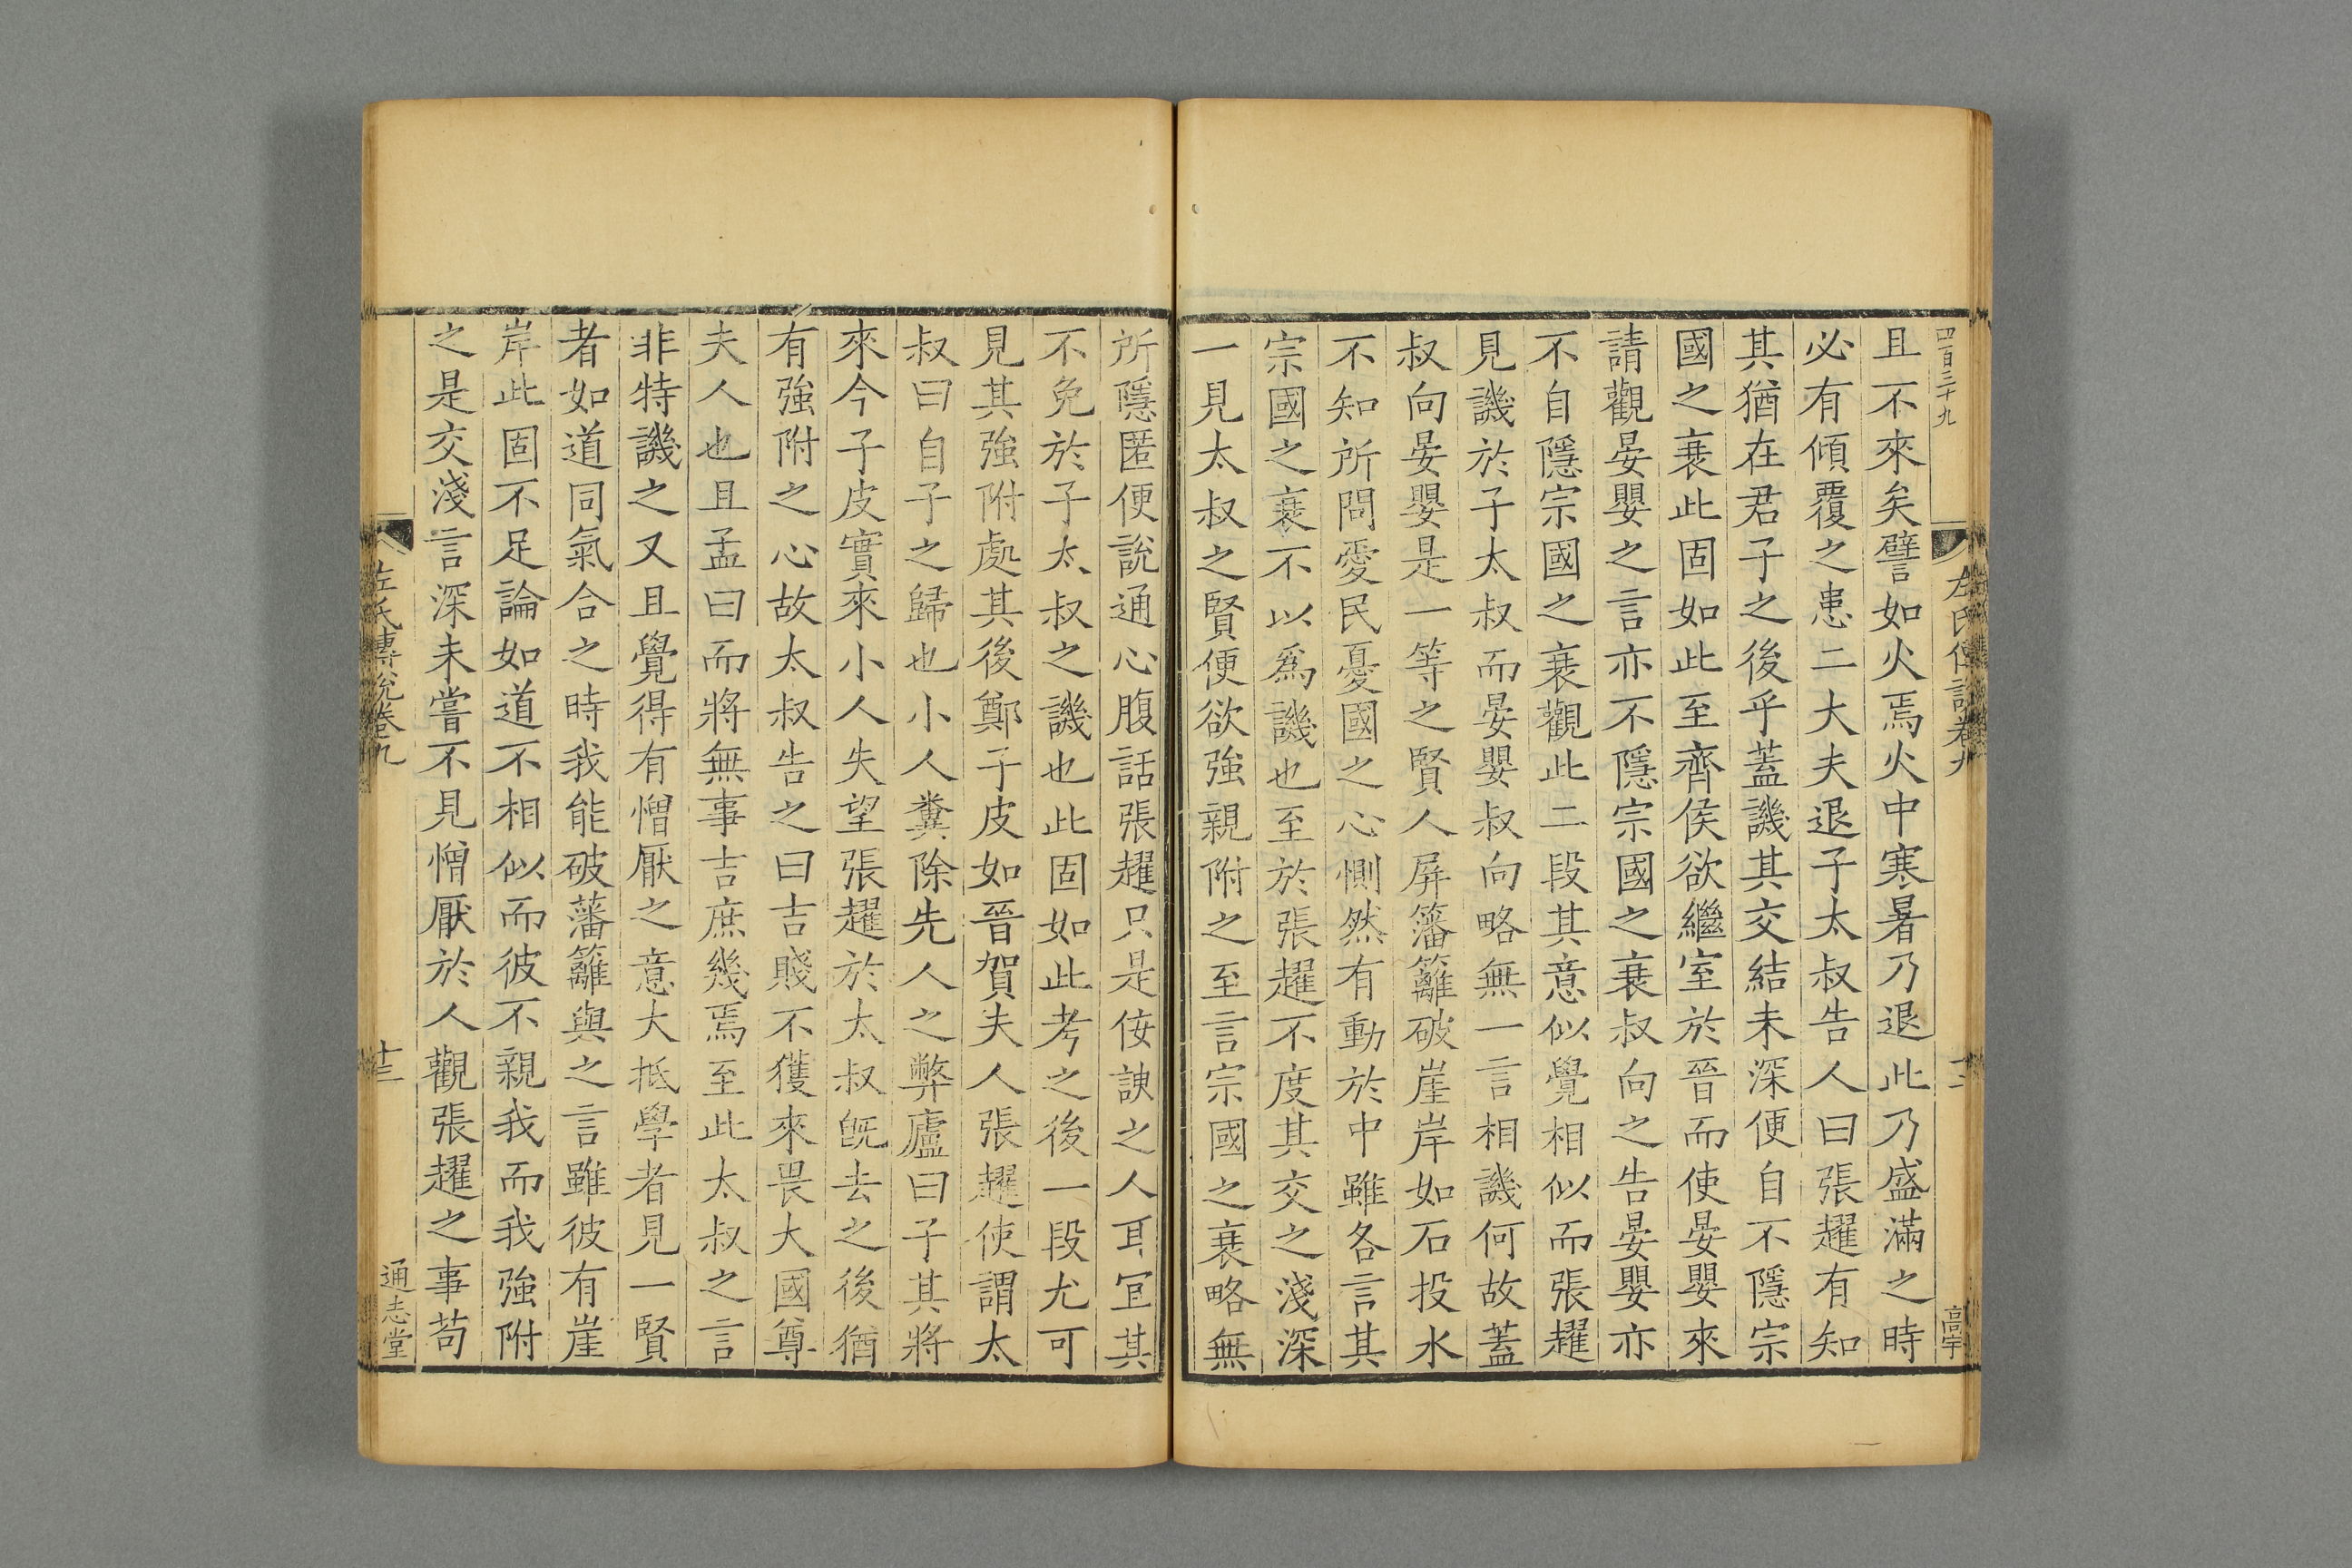 四百三十九
左氏傳說卷九
十二
高宇
且不來矣譬如火焉火中寒暑乃退此乃盛滿之時
必有傾覆之患二大夫退子太叔告人曰張趯有知
其猶在君子之後乎蓋譏其交結未深便自不隱宗
國之衰此固如此至齊侯欲繼室於晉而使晏嬰來
請觀晏嬰之言亦不隱宗國之衰叔向之告晏嬰亦
不自隱宗國之衰觀此二段其意似覺相似而張趯
見譏於子太叔而晏嬰叔向略無一言相譏何故蓋
叔向晏嬰是一等之賢人屏籓籬破崖岸如石投水
不知所問愛民憂國之心惻然有動於中雖各言其
宗國之衰不以爲譏也至於張趯不度其交之淺深
一見太叔之賢便欲強親附之至言宗國之衰略無
所隱匿便說通心腹話張趯只是佞諛之人耳冝其
不免於子太叔之譏也此固如此考之後一段尤可
見其強附處其後鄭子皮如晉賀夫人張趯使謂太
叔曰自子之歸也小人糞除先人之弊廬曰子其將
來今子皮實來小人失望張趯於太叔旣去之後猶
有強附之心故太叔告之曰吉賤不獲來畏大國尊
夫人也且孟曰而將無事吉庶幾焉至此太叔之言
非特譏之又且覺得有憎厭之意大抵學者見一賢
者如道同氣合之時我能破藩籬與之言雖彼有崖
岸此固不足論如道不相似而彼不親我而我強附
之是交淺言深未嘗不見憎厭於人觀張趯之事苟
左氏傳說卷九
十三
通志堂